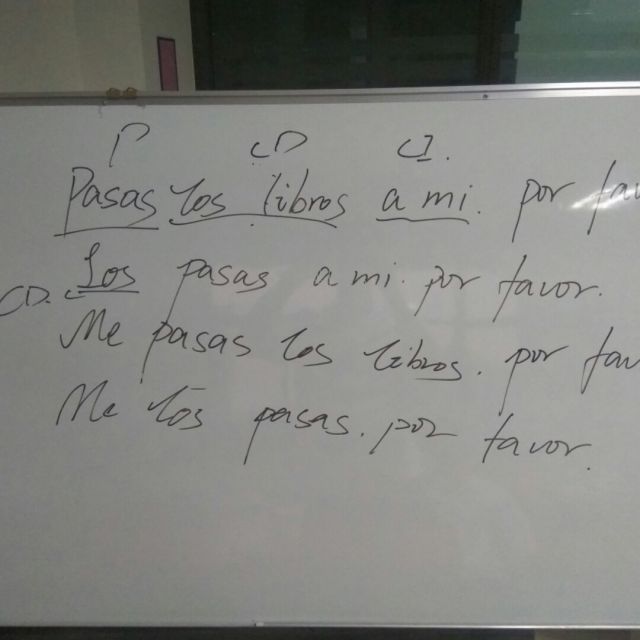 P CD CI.
Pasas los libros a mi. por fav
CD. Los pasas a mi. por favor.
Me pasas los libros. por fav
Me los pasas. por favor.